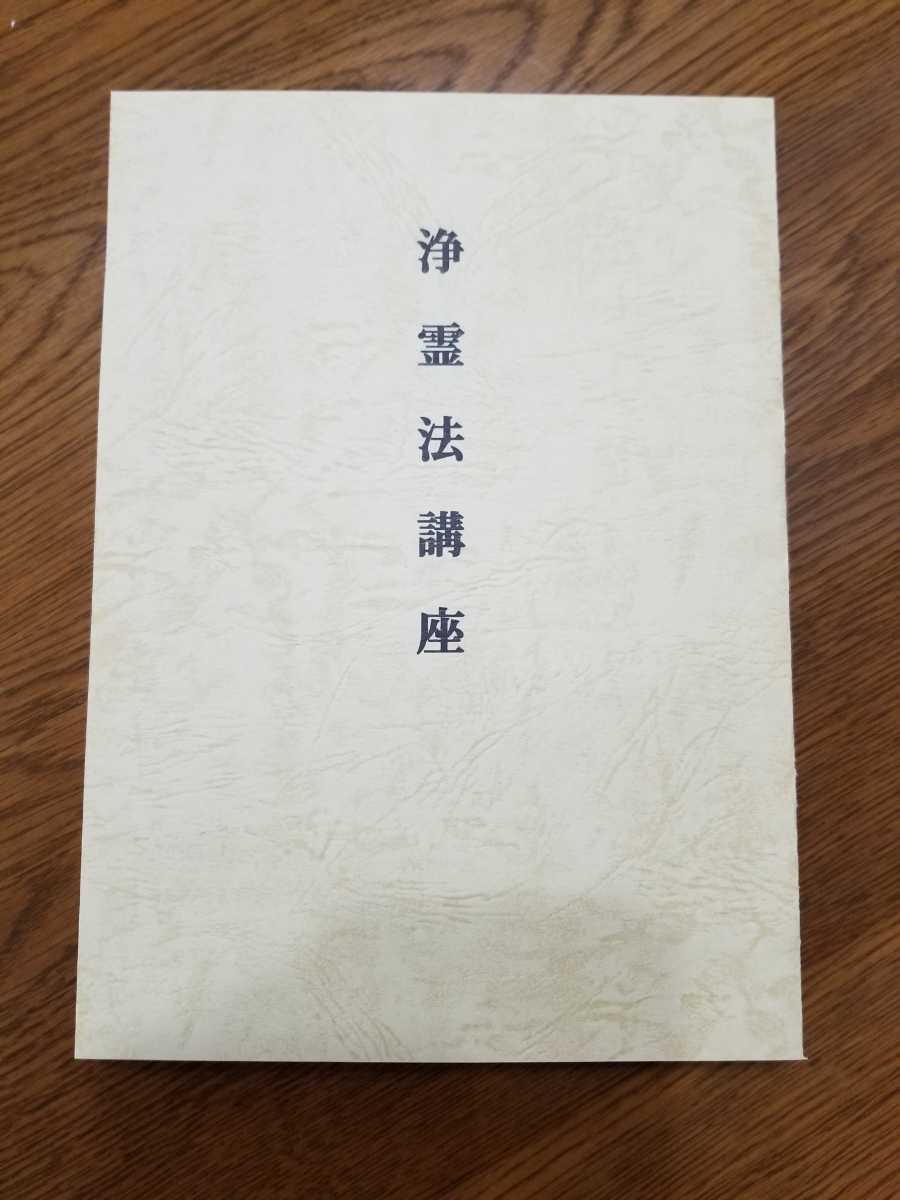 浄霊法講座